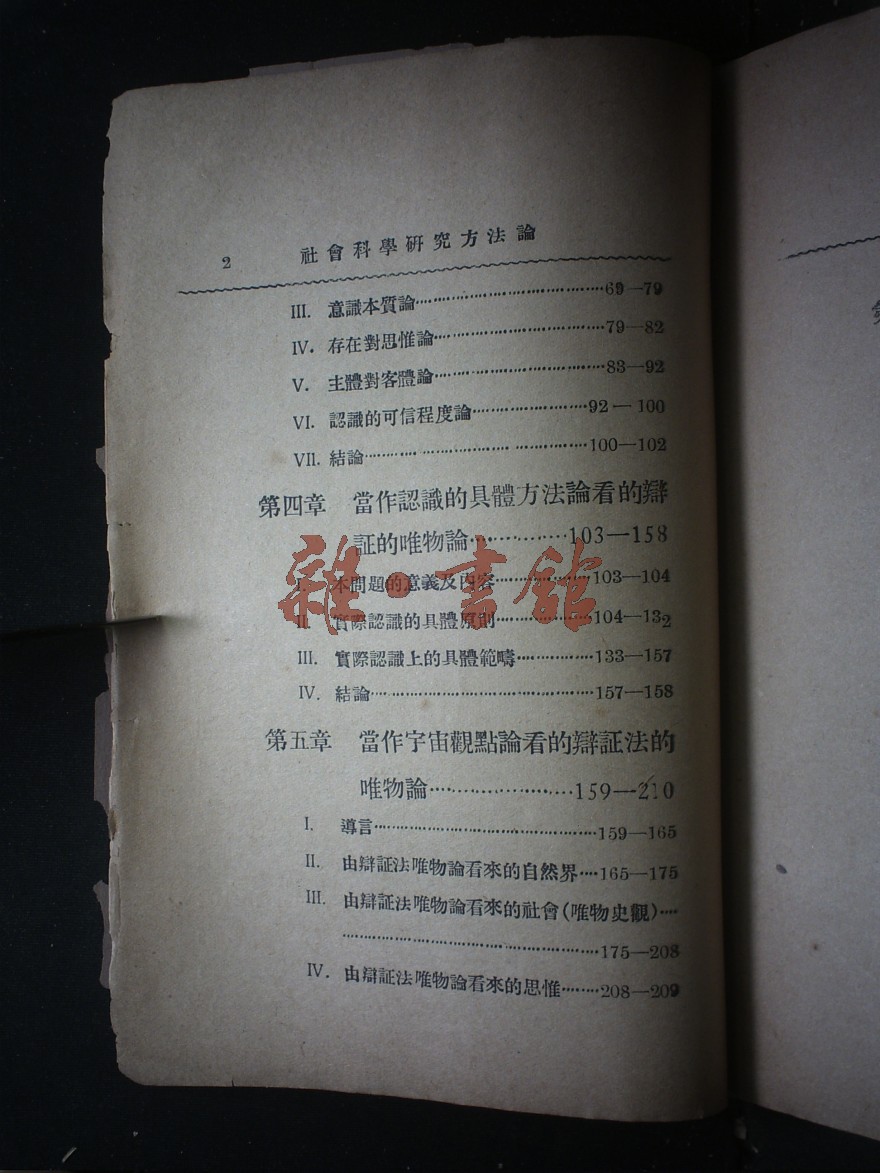 2 社會科學研究方法論
III. 意識本質論……69—79
IV. 存在對思惟論……79—82
V. 主體對客體論……83—92
VI. 認識的可信程度論……92—100
VII. 結論……100—102
第四章 當作認識的具體方法論看的辯
証的唯物論……103—158
I. 本問題的意義及內容……103—104
II. 實際認識的具體原則……104—132
III. 實際認識上的具體範疇……133—157
IV. 結論……157—158
第五章 當作宇宙觀點論看的辯証法的
唯物論……159—210
I. 導言……159—165
II. 由辯証法唯物論看來的自然界……165—175
III. 由辯証法唯物論看來的社會(唯物史觀)……
……175—208
IV. 由辯証法唯物論看來的思惟……208—209
雜·書館